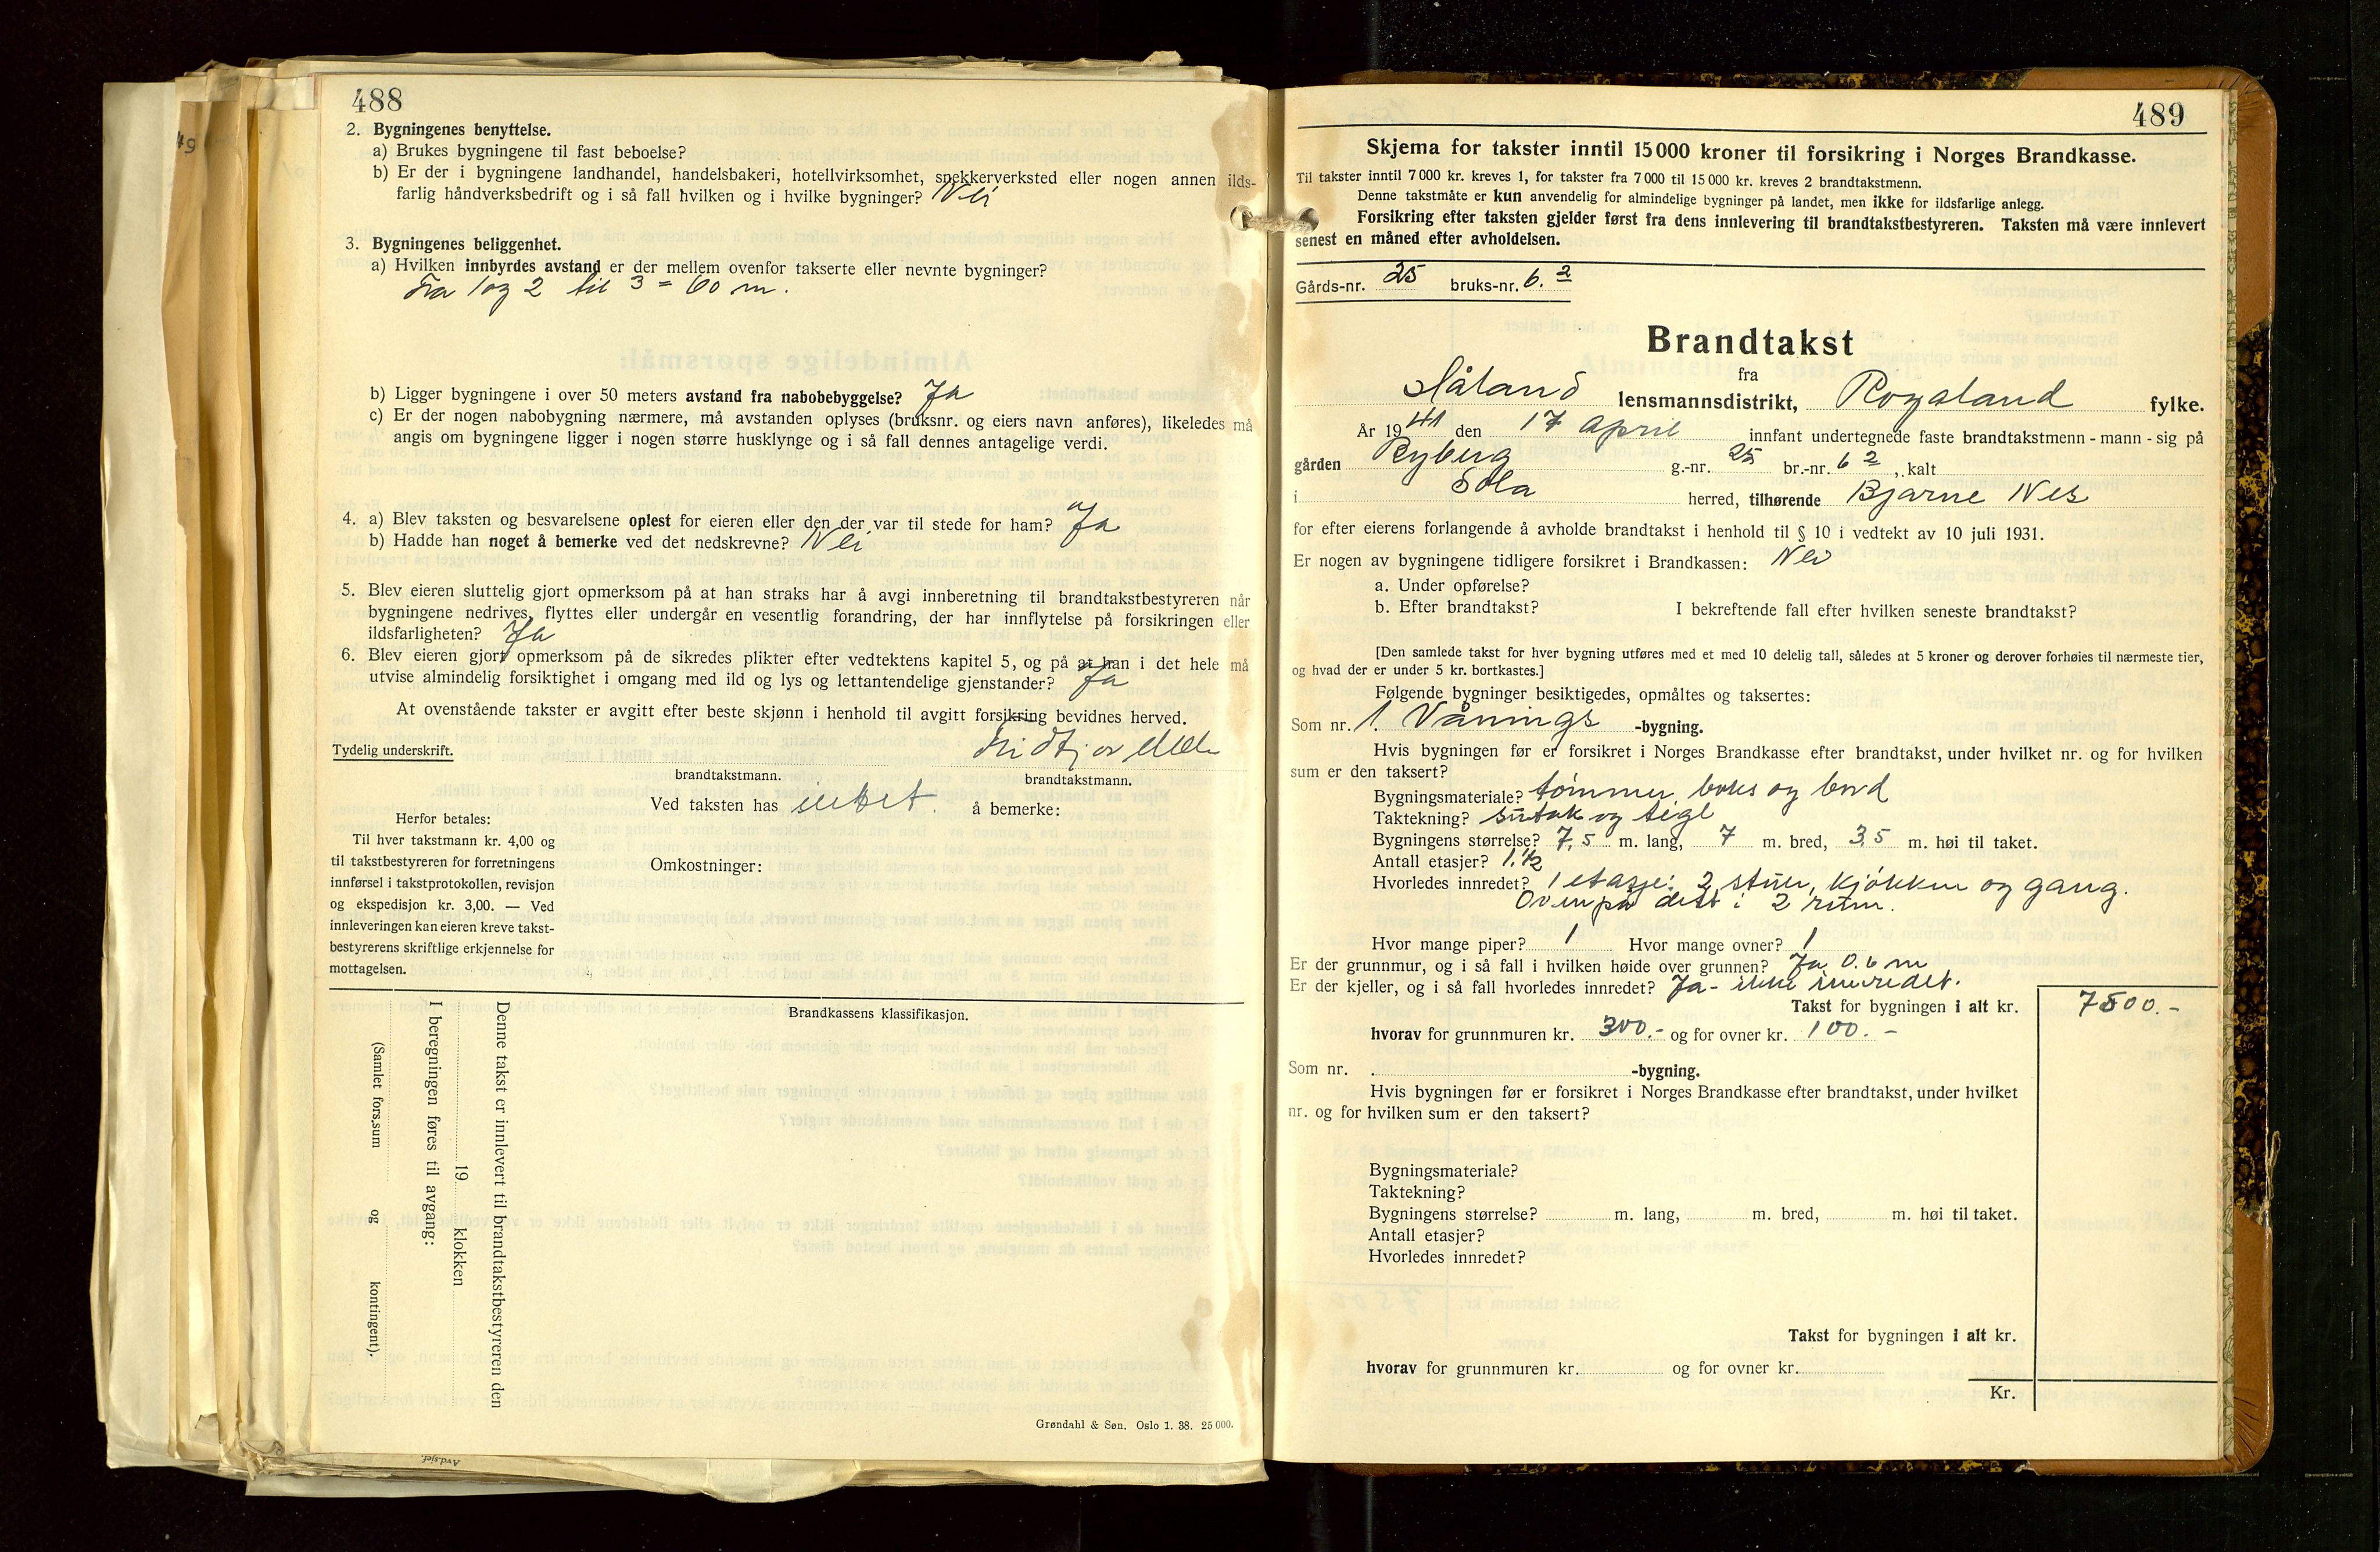 488
2. Bygningenes benyttelse.
a) Brukes bygningene til fast beboelse?
b) Er der i bygningene landhandel, handelsbakeri, hotellvirksomhet, snekkerverksted eller nogen annen ilds-
farlig håndverksbedrift og i så fall hvilken og i hvilke bygninger? Nei
3. Bygningenes beliggenhet.
a) Hvilken innbyrdes avstand er der mellem ovenfor takserte eller nevnte bygninger?
Fra 1 og 2 til 3 = 60 m.
b) Ligger bygningene i over 50 meters avstand fra nabobebyggelse? Ja
c) Er der nogen nabobygning nærmere, må avstanden oplyses (bruksnr. og eiers navn anføres), likeledes må
angis om bygningene ligger i nogen større husklynge og i så fall dennes antagelige verdi.
4. a) Blev taksten og besvarelsene oplest for eieren eller den der var til stede for ham? Ja
b) Hadde han noget å bemerke ved det nedskrevne? Nei
5. Blev eieren sluttelig gjort opmerksom på at han straks har å avgi innberetning til brandtakstbestyreren når
bygningene nedrives, flyttes eller undergår en vesentlig forandring, der har innflytelse på forsikringen eller
ildsfarligheten? Ja
6. Blev eieren gjort opmerksom på de sikredes plikter efter vedtektens kapitel 5, og på at han i det hele må
utvise almindelig forsiktighet i omgang med ild og lys og lettantendelige gjenstander? Ja
At ovenstående takster er avgitt efter beste skjønn i henhold til avgitt forsikring bevidnes herved.
Tydelig underskrift.
brandtakstmann. brandtakstmann.
Ved taksten has intet å bemerke:
Herfor betales:
Til hver takstmann kr. 4,00 og
til takstbestyreren for forretningens
innførsel i takstprotokollen, revisjon
og ekspedisjon kr. 3,00. — Ved
innleveringen kan eieren kreve takst-
bestyrerens skriftlige erkjennelse for
mottagelsen.
Omkostninger:
Brandkassens klassifikasjon.
Denne takst er innlevert til brandtakstbestyreren den
19 klokken
I beregningen føres til avgang:
(Samlet fors.sum og kontingent).
Grøndahl & Søn. Oslo 1. 38. 25 000.
Avdsjef.
489
Skjema for takster inntil 15 000 kroner til forsikring i Norges Brandkasse.
Til takster inntil 7 000 kr. kreves 1, for takster fra 7 000 til 15 000 kr. kreves 2 brandtakstmenn.
Denne takstmåte er kun anvendelig for almindelige bygninger på landet, men ikke for ildsfarlige anlegg.
Forsikring efter taksten gjelder først fra dens innlevering til brandtakstbestyreren. Taksten må være innlevert
senest en måned efter avholdelsen.
Gårds-nr. 25 bruks-nr. 6.2
Brandtakst
fra
Håland lensmannsdistrikt, Rogaland fylke.
År 1941 den 17 April innfant undertegnede faste brandtakstmenn - mann - sig på
gården Ryberg g.-nr. 25 br.-nr. 6 2, kalt
i Sola herred, tilhørende Bjarne Nes
for efter eierens forlangende å avholde brandtakst i henhold til § 10 i vedtekt av 10 juli 1931.
Er nogen av bygningene tidligere forsikret i Brandkassen: Nei
a. Under opførelse?
b. Efter brandtakst? I bekreftende fall efter hvilken seneste brandtakst?
[Den samlede takst for hver bygning utføres med et med 10 delelig tall, således at 5 kroner og derover forhøies til nærmeste tier,
og hvad der er under 5 kr. bortkastes.]
Følgende bygninger besiktigedes, opmåltes og taksertes:
Som nr. 1. Vånings -bygning.
Hvis bygningen før er forsikret i Norges Brandkasse efter brandtakst, under hvilket nr. og for hvilken
sum er den taksert?
Bygningsmateriale? tømmer, boks og bord
Taktekning? sutak og tegl
Bygningens størrelse? 7,5 m. lang, 7 m. bred, 3,5 m. høi til taket.
Antall etasjer? 1.1/2
Hvorledes innredet? 1 etasje: 2 stuer, kjøkken og gang.
Ovenpå delt i 2 rum.
Hvor mange piper? 1 Hvor mange ovner? 1
Er der grunnmur, og i så fall i hvilken høide over grunnen? Ja 0.6 m
Er der kjeller, og i så fall hvorledes innredet? Ja - ikke innredet.
Takst for bygningen i alt kr. 7500.-
hvorav for grunnmuren kr. 300.- og for ovner kr. 100.-
Som nr. -bygning.
Hvis bygningen før er forsikret i Norges Brandkasse efter brandtakst, under hvilket
nr. og for hvilken sum er den taksert?
Bygningsmateriale?
Taktekning?
Bygningens størrelse? m. lang, m. bred, m. høi til taket.
Antall etasjer?
Hvorledes innredet?
Takst for bygningen i alt kr.
hvorav for grunnmuren kr. og for ovner kr.
Kr.